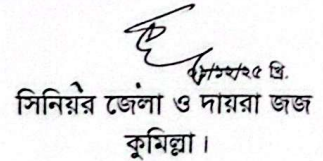 খ্রি.
সিনিয়র জেলা ও দায়রা জজ
কুমিল্লা।